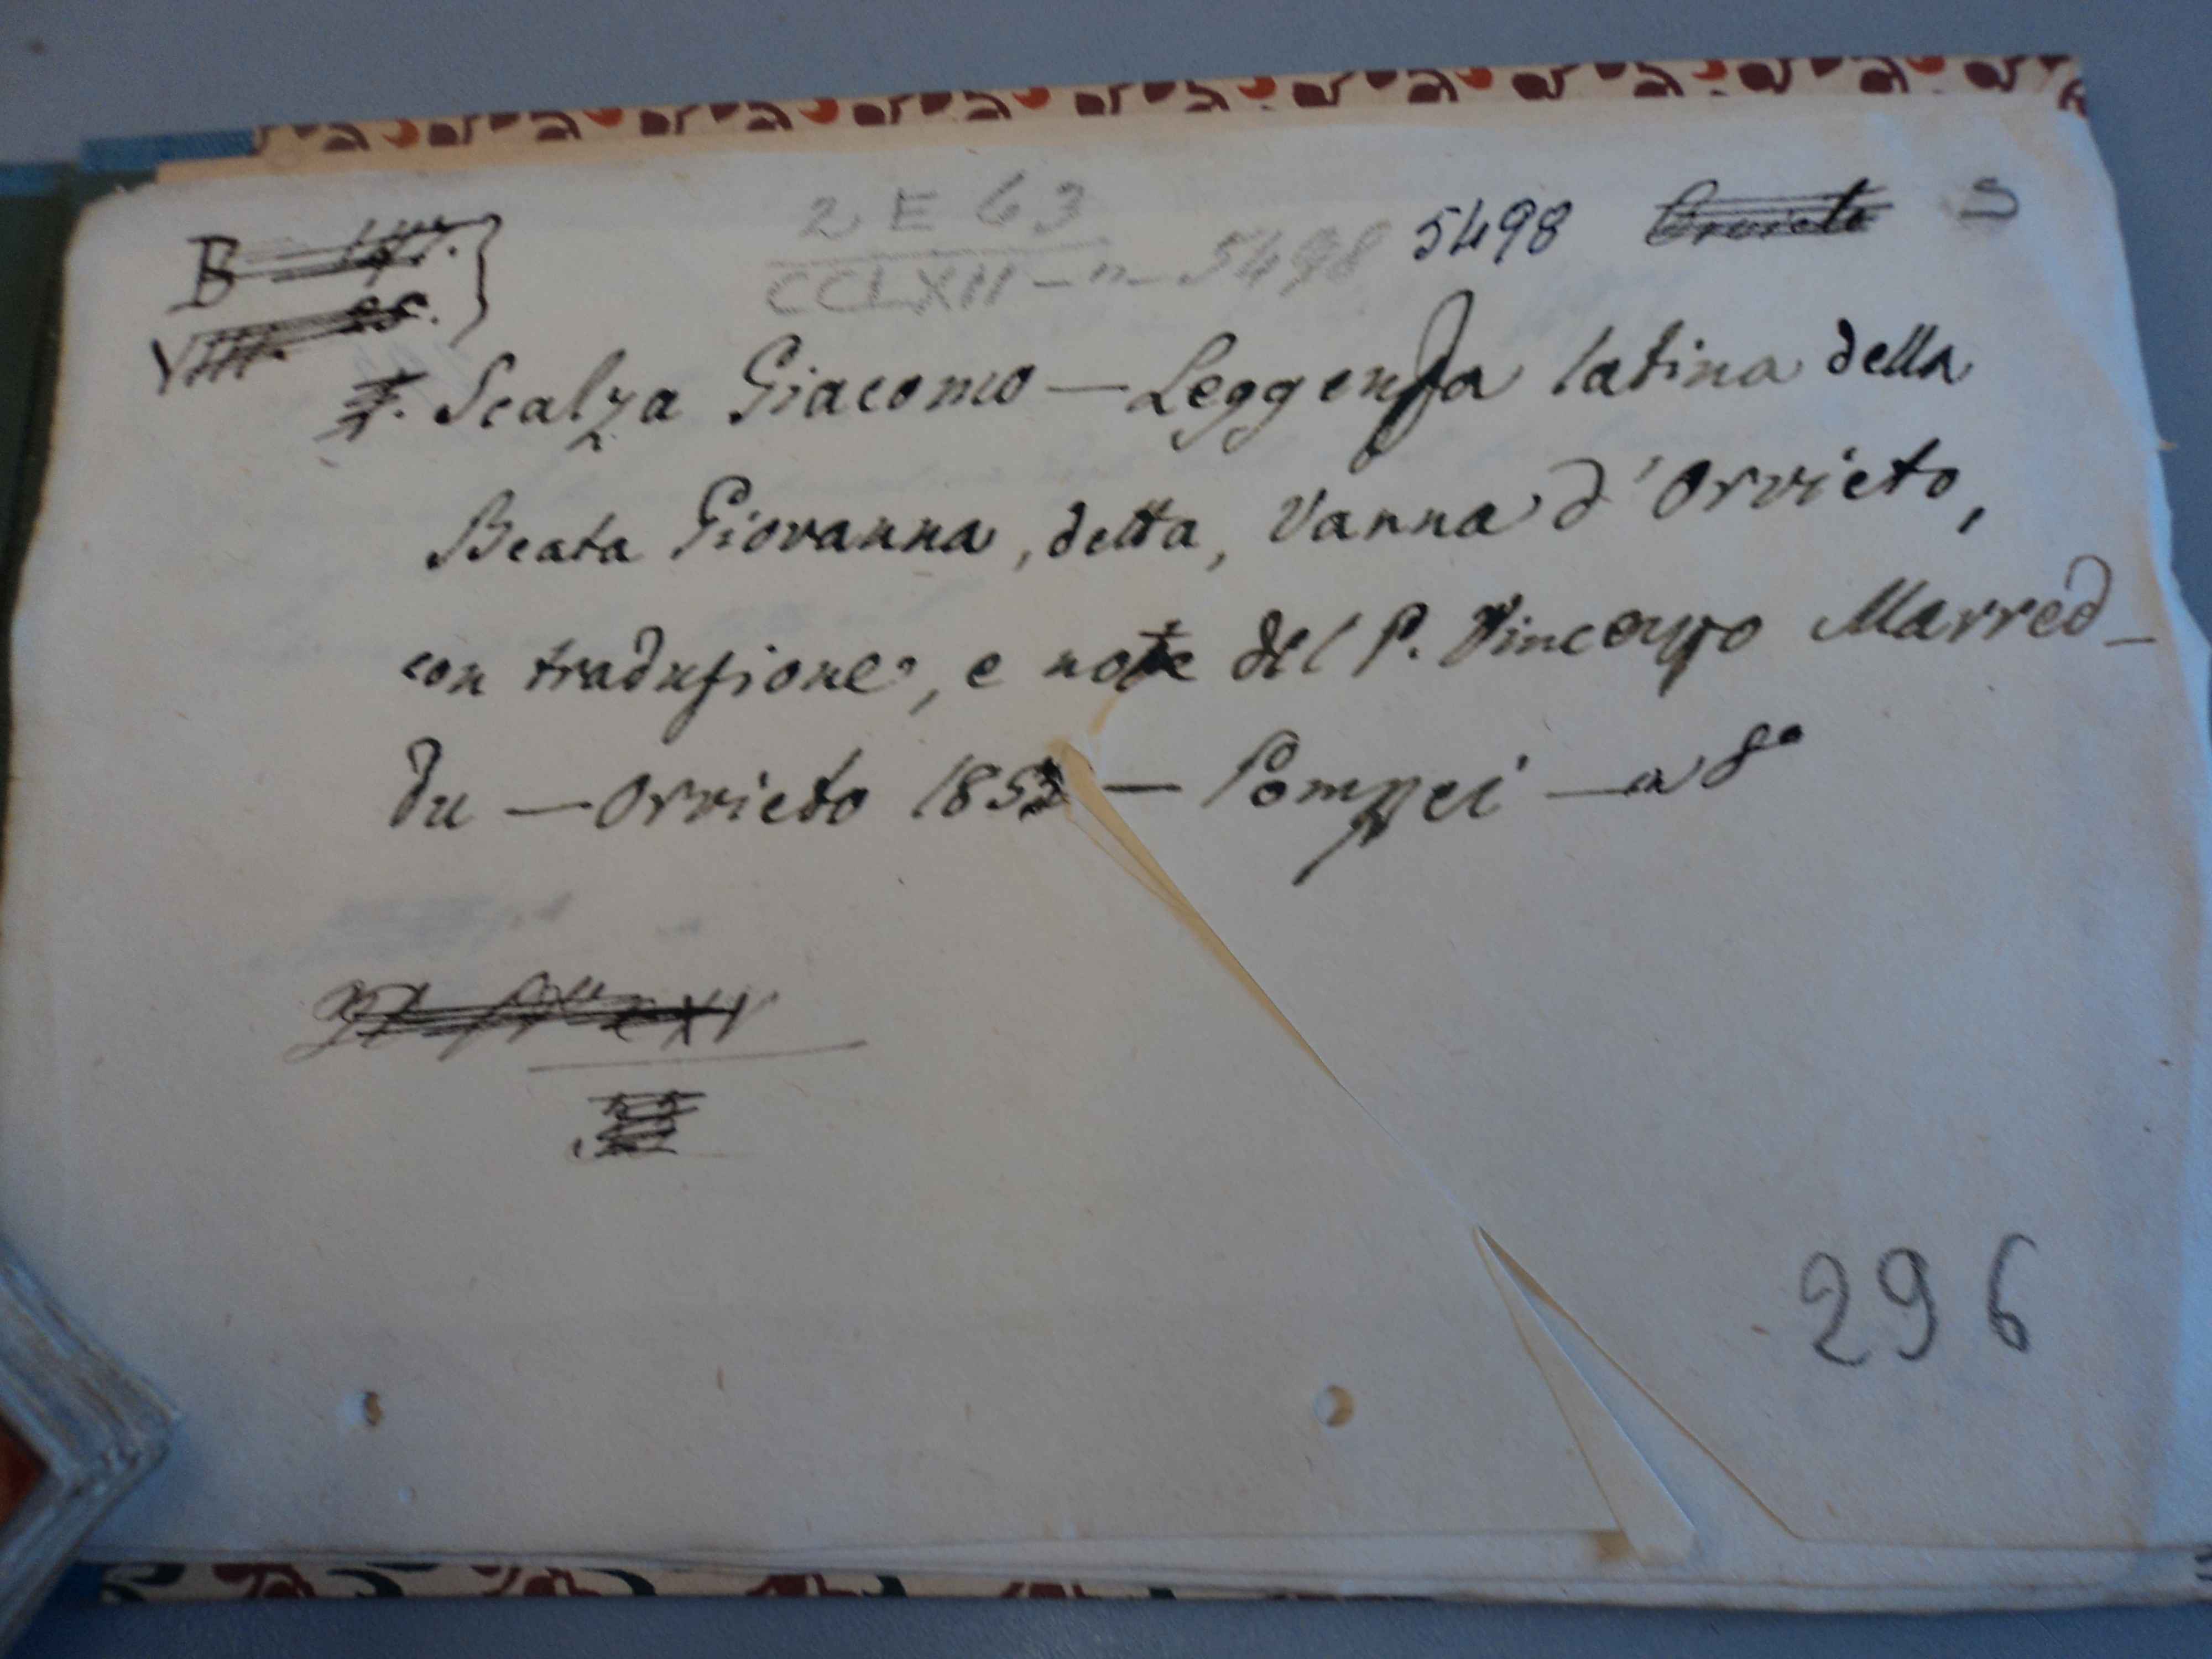 2 E 63
CCLXII - n - 5498
5498
S
B 
Scalza Giacomo — Leggenda latina della
Beata Giovanna, detta, Vanna d'Orvieto,
con traduzione, e note del P. Vincenzo Marred-
du — Orvieto 1853 — Pompei — in 8º
296